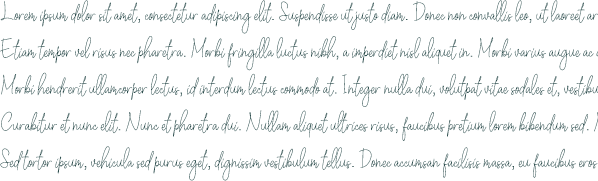 Lorem ipsum dolor sit amet, consectetur adipiscing elit. Suspendisse ut justo diam. Donec non convallis leo, ut laoreet ar
Etiam tempor vel risus nec pharetra. Morbi fringilla luctus nibh, a imperdiet nisl aliquet in. Morbi varius augue ac
Morbi hendrerit ullamcorper lectus, id interdum lectus commodo at. Integer nulla dui, volutpat vitae sodales et, vestibu
Curabitur et nunc elit. Nunc et pharetra dui. Nullam aliquet ultrices risus, faucibus pretium lorem bibendum sed.
Sed tortor ipsum, vehicula sed purus eget, dignissim vestibulum tellus. Donec accumsan facilisis massa, eu faucibus eros